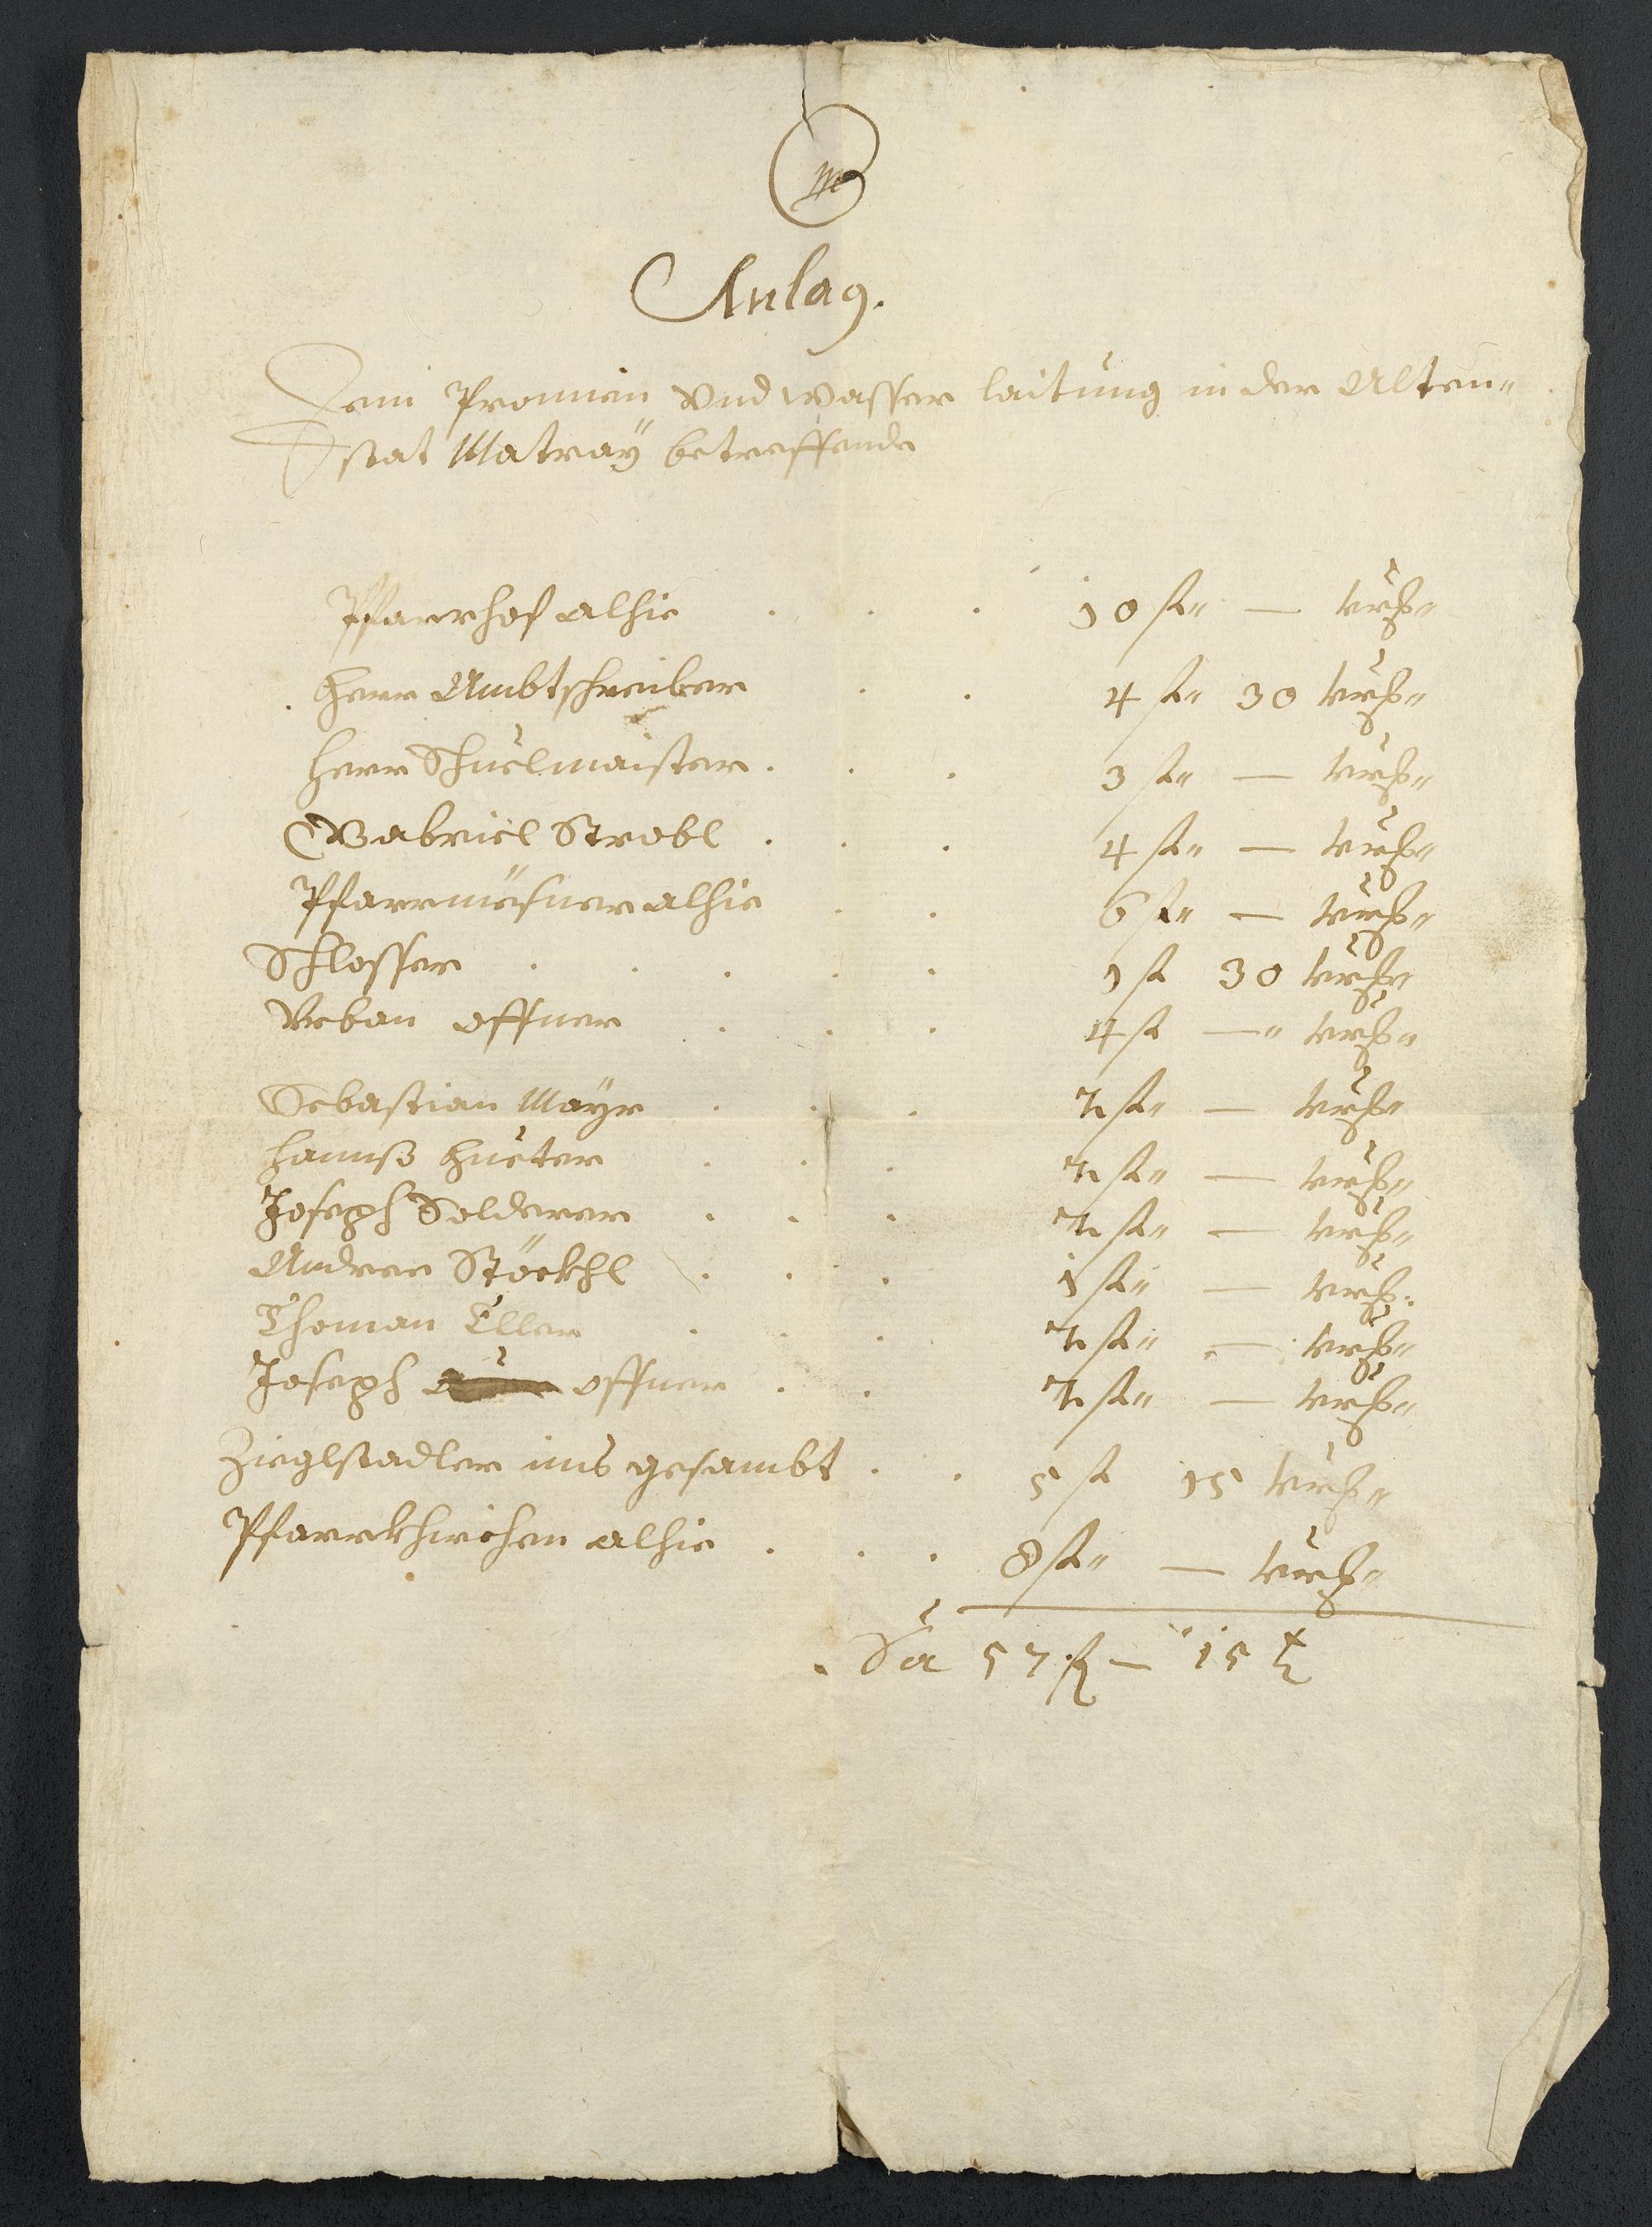 Anlag.
Dem Pronnen Vnd wasser laitung in der Alten=
stat Matraÿ betreffende
Pfarrhof alhie . . . 10 fl" — kreuz"
Herr Ambtschreiber . . 4 fl" 30 kreuz"
Herr Schuelmaister . . . 3 fl" — kreuz"
Gabriel Strobl . . . 4 fl" — kreuz"
Pfarrmësner alhie . . 6 fl" — kreuz"
Schlosser . . . . . 1 fl 30 kreuz"
Vrban Offner . . . 4 fl —" kreuz"
Sebastian Maÿr . . . 2 fl" — kreuz"
Hannß Hueter . . . 2 fl" — kreuz"
Joseph Solderer . . . 2 fl" — kreuz"
Andree Stöckhl . . . 1 fl" — kreuz.
Thoman Eller . . . 2 fl" — kreuz"
Joseph Offner . . 2 fl" — kreuz"
Zieglstadler ins gesambt . . 5 fl 15 kreuz"
Pfarrkhirchen alhie . . . 8 fl" — kreuz"
Sa 57 fl — 15 x